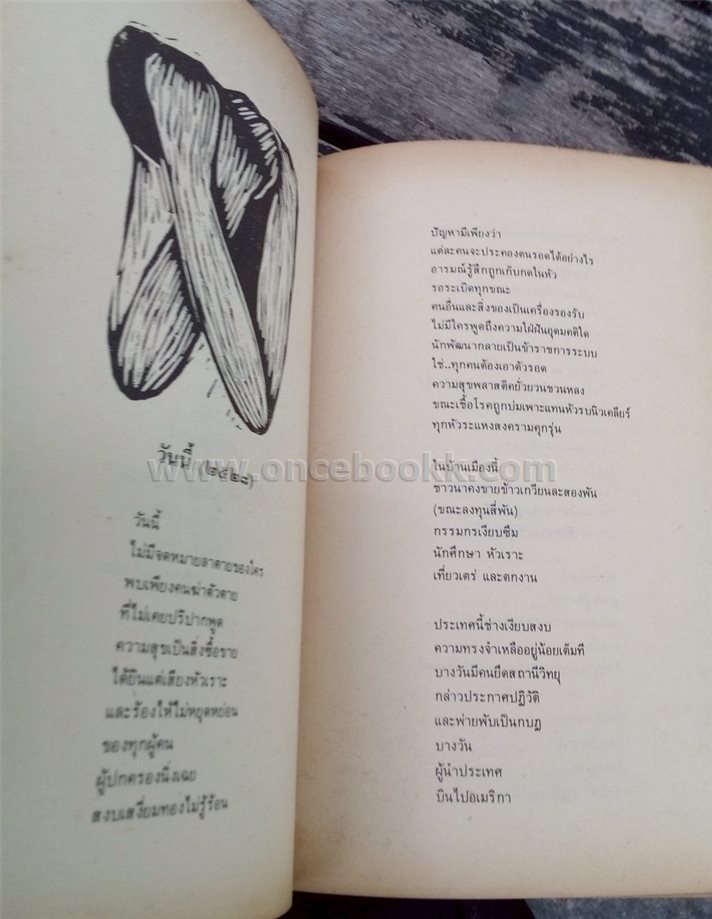 วันนี้ (๒๕๒๘)
วันนี้
ไม่มีจดหมายลาตายของใคร
พบเพียงคนฆ่าตัวตาย
ที่ไม่เคยปริปากพูด
ความสุขเป็นสิ่งซื้อขาย
ได้ยินแต่เสียงหัวเราะ
และร้องไห้ไม่หยุดหย่อน
ของทุกผู้คน
ผู้ปกครองนิ่งเฉย
สงบเสงี่ยมทองไม่รู้ร้อน
ปัญหามีเพียงว่า
แต่ละคนจะประคองตนรอดได้อย่างไร
อารมณ์รู้สึกถูกเก็บกดในหัว
รอระเบิดทุกขณะ
คนอื่นและสิ่งของเป็นเครื่องรองรับ
ไม่มีใครพูดถึงความใฝ่ฝันอุดมคติใด
นักพัฒนากลายเป็นข้าราชการระบบ
ใช่..ทุกคนต้องเอาตัวรอด
ความสุขพลาสติคยั่วยวนชวนหลง
ขณะเชื้อโรคถูกบ่มเพาะแทนหัวรบนิวเคลียร์
ทุกหัวระแหงสงครามคุกรุ่น
ในบ้านเมืองนี้
ชาวนาคงขายข้าวเกวียนละสองพัน
(ขณะลงทุนสี่พัน)
กรรมกรเงียบซึม
นักศึกษา หัวเราะ
เที่ยวเตร่ และตกงาน
ประเทศนี้ช่างเงียบสงบ
ความทรงจำเหลืออยู่น้อยเต็มที
บางวันมีคนยึดสถานีวิทยุ
กล่าวประกาศปฏิวัติ
และพ่ายพับเป็นกบฏ
บางวัน
ผู้นำประเทศ
บินไปอเมริกา
www.oncebookk.com